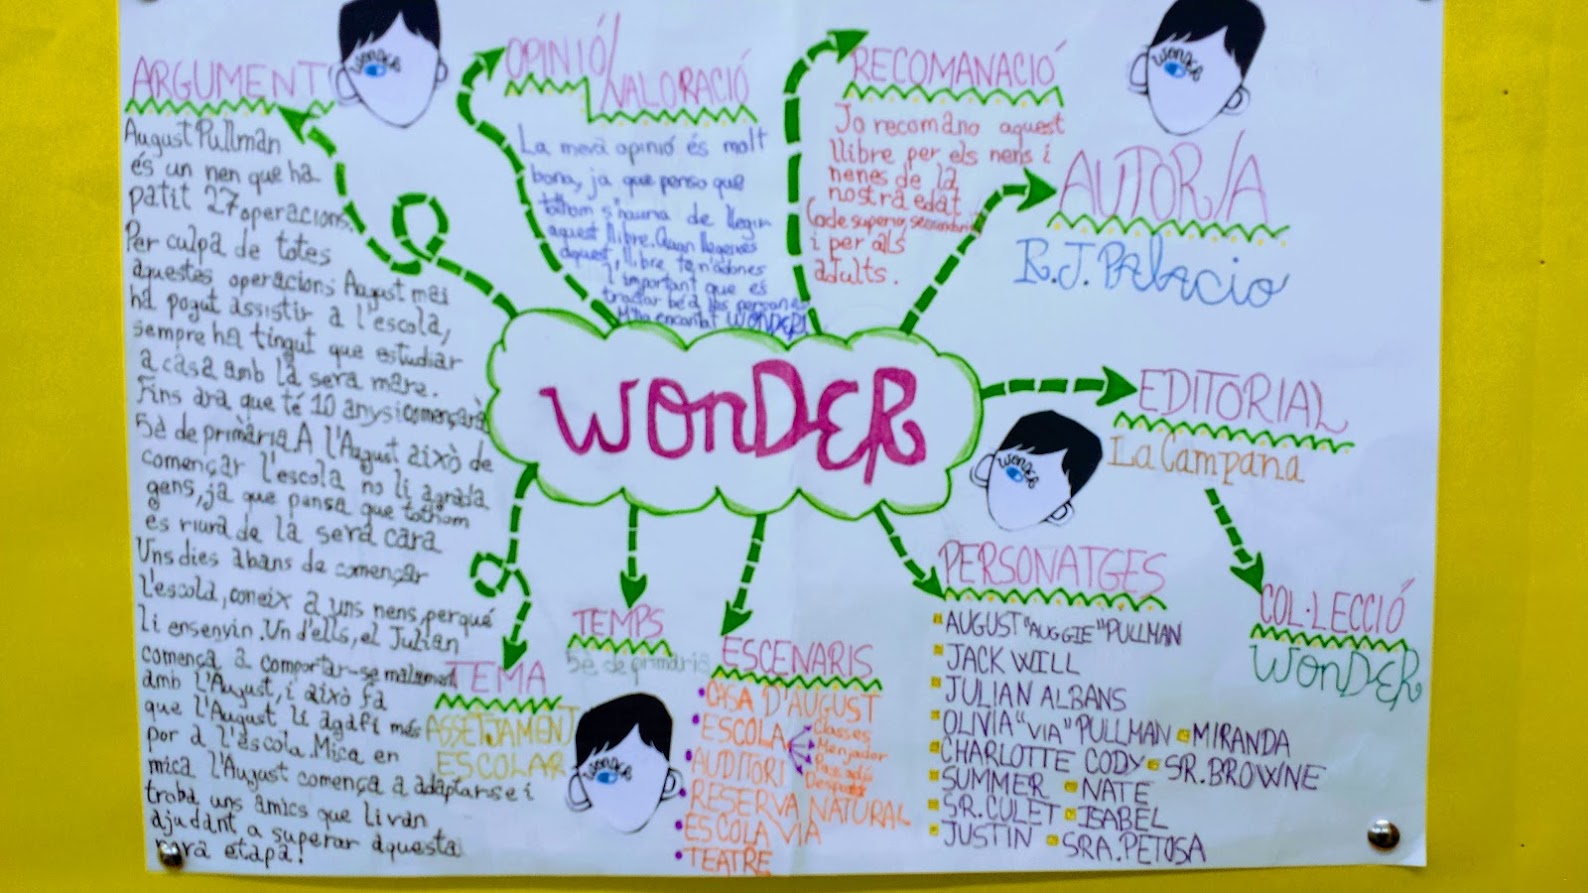 ARGUMENT
August Pullman
és un nen que ha
patit 27 operacions.
Per culpa de totes
aquestes operacions August mai
ha pogut assistir a l'escola,
sempre ha tingut que estudiar
a casa amb la seva mare.
Fins ara que té 10 anys i començarà
5è de primària. A l'August això de
començar l'escola no li agrada
gens, ja que pensa que tothom
es riurà de la seva cara
Uns dies abans de començar
l'escola, coneix a uns nens, perquè
li ensenyin. Un d'ells, el Julian
comença a comportar-se malament
amb l'August, i això fa
que l'August li agafi més
por a l'escola. Mica en
mica l'August comença a adaptarse i
troba uns amics que li van
ajudant a superar aquesta
nova etapa!
OPINIÓ/
VALORACIÓ
La meva opinió és molt
bona, ja que penso que
tothom s'hauria de llegir
aquest llibre. Quan llegeixes
aquest, llibre te n'adones
l'important que és
tractar bé a les persones
M'ha encantat WONDER!
RECOMANACIÓ
Jo recomano aquest
llibre per els nens i
nenes de la
nostra edat
(cicle superior, secundària)
i per als
adults.
AUTOR/A
R.J. Palacio
WONDER
EDITORIAL
La Campana
COL·LECCIÓ
WONDER
PERSONATGES
AUGUST "AUGGIE" PULLMAN
JACK WILL
JULIAN ALBANS
OLIVIA "VIA" PULLMAN MIRANDA
CHARLOTTE CODY SR. BROWNE
SUMMER NATE
SR. CULET ISABEL
JUSTIN SRA. PETOSA
ESCENARIS
CASA D'AUGUST
ESCOLA
Classes
Menjador
Passadís
Despatx
AUDITORI
RESERVA NATURAL
ESCOLA VIA
TEATRE
TEMPS
5è de primària
TEMA
ASSETJAMENT
ESCOLAR
wonder
wonder
wonder
wonder